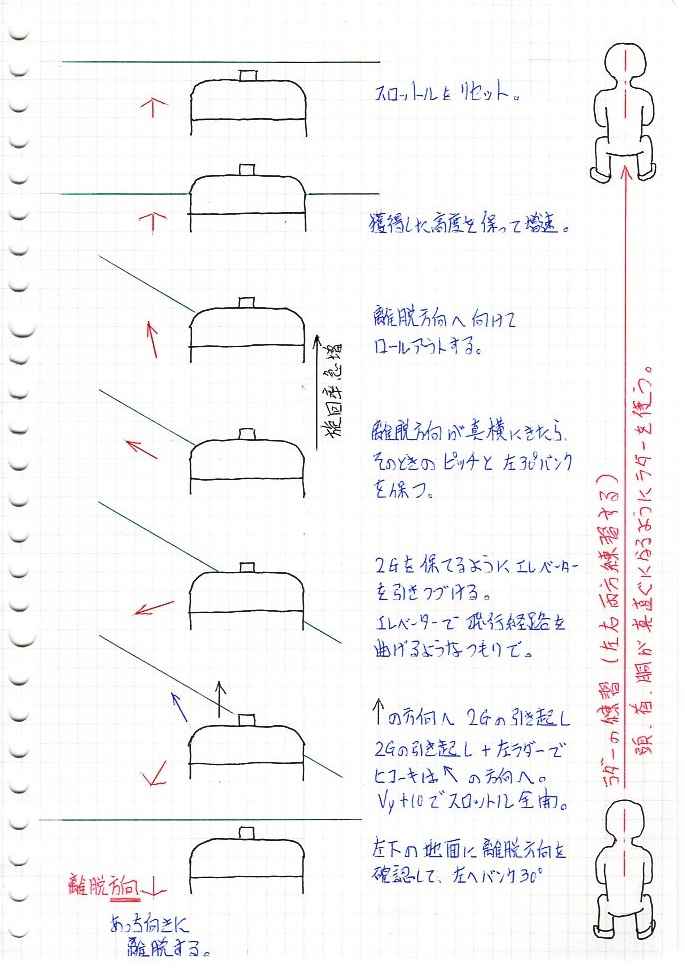 スロットルをリセット。
獲得した高度を保って増速。
離脱方向へ向けて
ロールアウトする。
旋回率急増
離脱方向が真横にきたら、
そのときのピッチと左30°バンク
を保つ。
2Gを保てるようにエレベーター
を引きつづける。
エレベーターで飛行経路を
曲げるようなつもりで。
↑の方向へ 2Gの引き起し
2Gの引き起し+左ラダーで
ヒコーキは↖の方向へ。
Vy+10でスロットル全開。
左下の地面に離脱方向を
確認して、左へバンク30°
離脱方向↓
あっち向きに
離脱する。
ラダーの練習(左右両方練習する)
頭、首、胴が真直ぐになるようにラダーを使う。